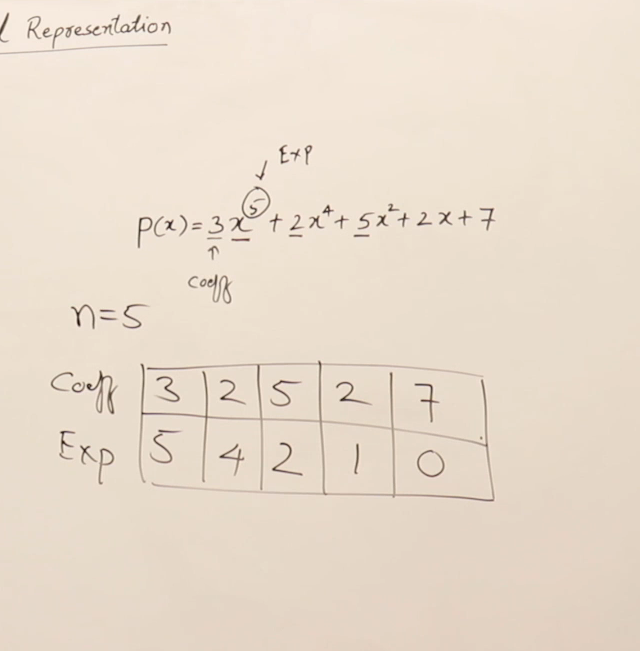 l Representation
Exp
P(x) = 3x⁵ + 2x⁴ + 5x² + 2x + 7
Coeff
n=5
Coeff 3 2 5 2 7
Exp 5 4 2 1 0